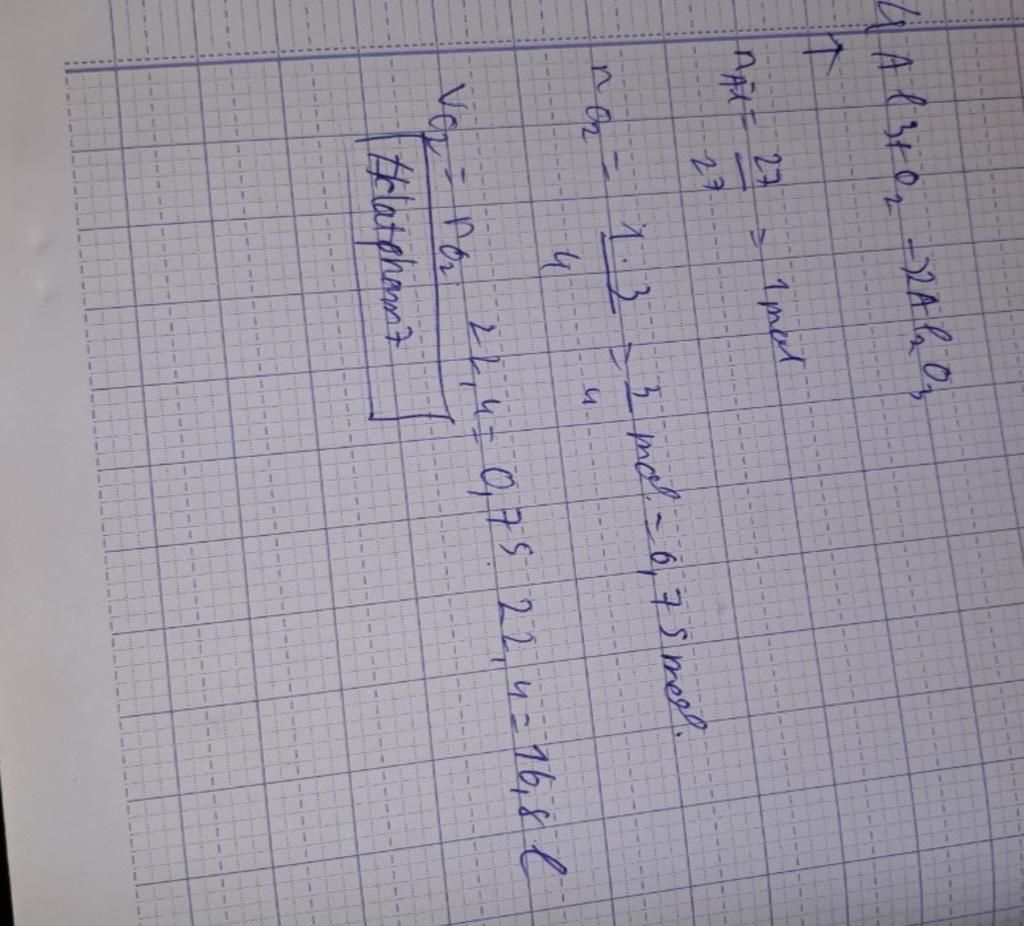 4Al3+O2 → 2Al2O3
↑
nAl = 27/27 = 1mol
nO2 = 1.3/4 = 3/4 mol = 0,75mol.
VO2 = nO2 22,4 = 0,75 22,4 = 16,8 l
#latpham7